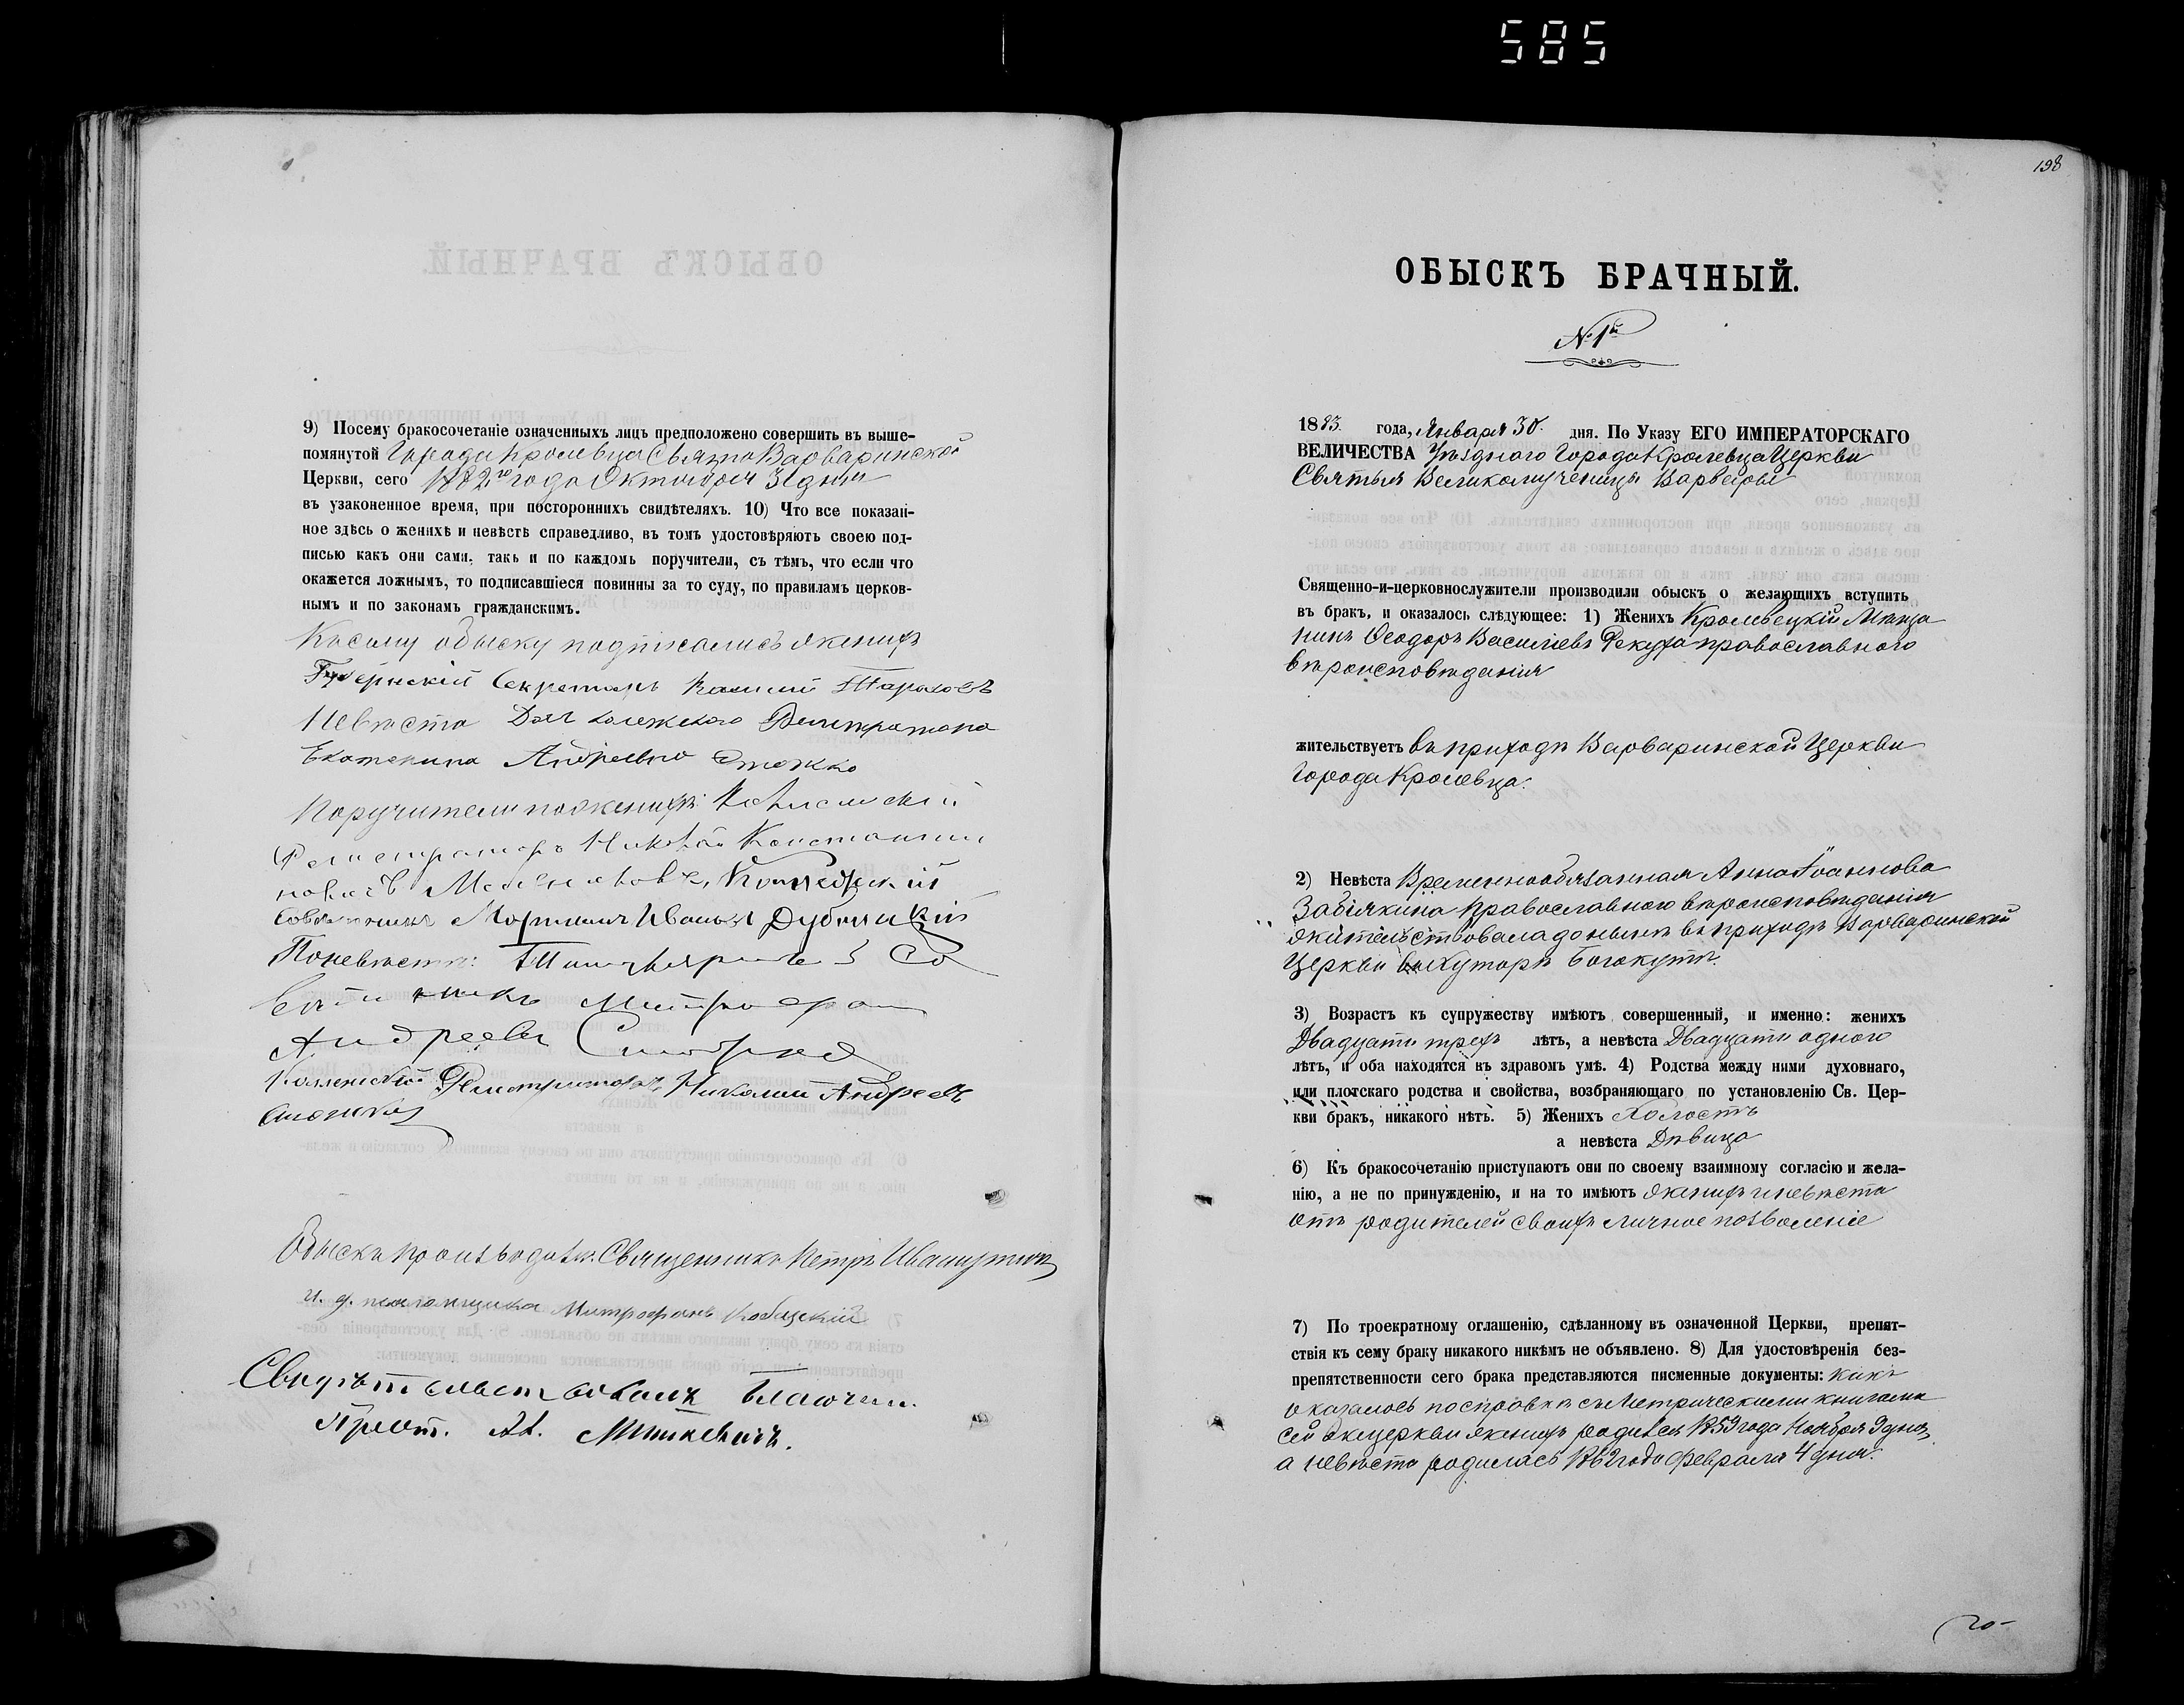 585
9) Посему бракосочетаніе означенныхъ лицъ предположено совершить въ выше-
помянутой Города Кролевца Свято Варваринской
Церкви, сего 1882го года Октября 31 дня
въ узаконенное время, при постороннихъ свидѣтеляхъ. 10) Что все показан-
ное здѣсь о женихѣ и невѣстѣ справедливо, въ томъ удостовѣряютъ своею под-
писью какъ они сами, такъ и по каждомъ поручители, съ тѣмъ, что если что
окажется ложнымъ, то подписавшіеся повинны за то суду, по правиламъ церков-
нымъ и по законамъ гражданскимъ.
К сему обыску подписались женихъ
Губернскій Секретарь
Невѣста Дочь
Екатерина Андреевна
Поручители по женихѣ:
Регистраторъ Николай Константи
новичъ
Ивановъ Дубницкій
По невѣстѣ: Титулярный Со
вѣтникъ Митрофан
Андреевъ
Коллежскій Регистраторъ Николай Андреевъ
Обыскъ производилъ: Священникъ Петръ
и. д. псаломщика Митрофанъ
Свидѣтельствовалъ Благочин.
Прот. Ал.
198
ОБЫСКЪ БРАЧНЫЙ.
№ 1й
1883. года, Января 30. дня. По Указу ЕГО ИМПЕРАТОРСКАГО
ВЕЛИЧЕСТВА Уѣзднаго Города Кролевца Церкви
Святыя Великомученицы Варвары
Священно-и-церковнослужители производили обыскъ о желающихъ вступить
въ бракъ, и оказалось слѣдующее: 1) Женихъ Кролевецкій Мѣща
нинъ Ѳеодоръ Васильевъ православного
вѣроисповѣданія
жительствуетъ въ приходѣ Варваринской Церкви
Города Кролевца.
2) Невѣста Временнообязанная Анна Іоаннова
Забіякина Православного вѣроисповѣданія
жительствовала до нынѣ въ приходѣ Варваринской
Церкви
3) Возрастъ къ супружеству имѣютъ совершенный, и именно: женихъ
Двадцати трехъ лѣтъ, а невѣста Двадцати одного
лѣтъ, и оба находятся въ здравомъ умѣ. 4) Родства между ними духовнаго,
или плотскаго родства и свойства, возбраняющаго по установленію Св. Цер-
кви бракъ, никакого нѣтъ. 5) Женихъ Холостъ
а невѣста Дѣвица
6) Къ бракосочетанію приступаютъ они по своему взаимному согласію и жела-
нію, а не по принужденію, и на то имѣютъ женихъ и невѣста
отъ родителей своихъ личное позволеніе
7) По троекратному оглашенію, сдѣланному въ означенной Церкви, препят-
ствія къ сему браку никакого никѣмъ не объявлено. 8) Для удостовѣренія без-
препятственности сего брака представляются писменные документы: какъ
оказалось по справкѣ съ Метрическими книгами
сей же церкви женихъ родился 1859 года Ноября 9 дня,
а невѣста родилась 1862 года Февраля 4 дня.